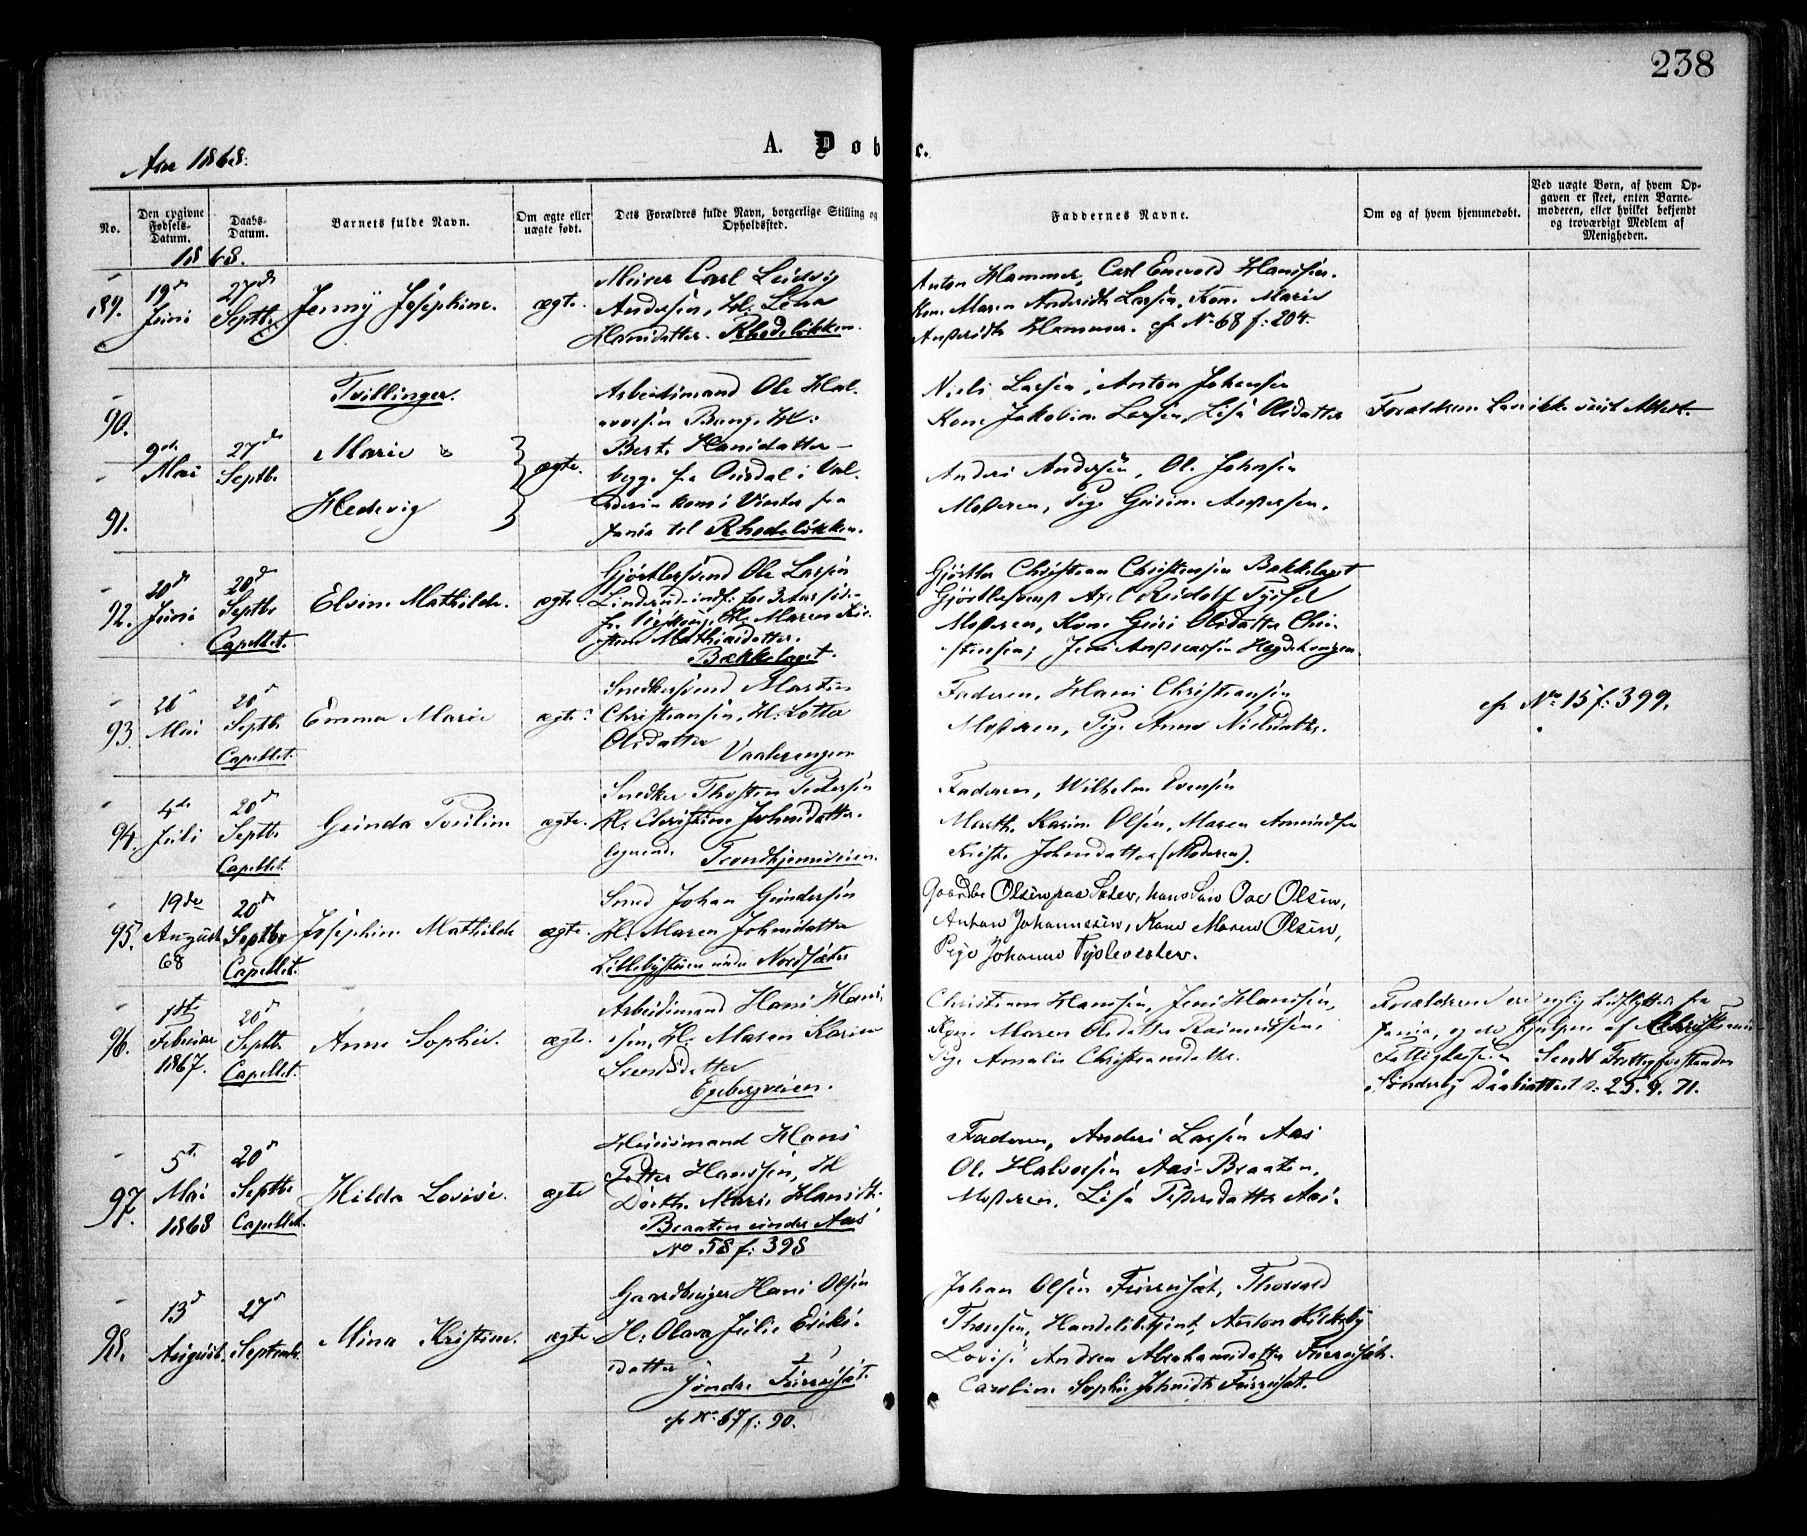 238
Aar 1868.
A. Døbte.
No.
Den opgivne Fødsels-Datum.
Daabs-Datum.
Barnets fulde Navn.
Om ægte eller uægte født.
Dets Forældres fulde Navn, borgerlige Stilling og Opholdssted.
Faddernes Navne.
Om og af hvem hjemmedøbt.
Ved uægte Børn, af hvem Opgaven er skeet, enten Barnemoderen, eller hvilket bekjendt og troværdigt Medlem af Menigheden.
1868.
89.
19de Juni
27de Septbr.
Jenny Josephine.
ægte.
Murer Carl Ludvig
Andersen, H: Lena
Hansdatter. Rhodeløkken.
Anton Hammer, Carl Enevold Hanssen.
Kone Maren Andersdtr Larsen, Kone Marie
Hammer. cfr No 68 f: 204.
Tvillinger.
90.
9de Mai
27de Septbr.
Marie &
ægte.
Arbeidsmand Ole Hal-
vorsen Bang, H:
Bert. Hansdatter
Niels Larsen, Anton Johansen
Kone Jakobine Larsen, Lise Olsdatter
91.
Hedevig
begge fra i Val-
ders kom i Vinter fra
til Rhodeløkken.
Anders Andersen, Ole Johnsen
Moderen, Pige
92.
20de Juni
20de Septbr. Capellet.
Elvine Mathilde.
ægte.
Gjørtlersvend Ole Larsen
H: Maren Kir-
stine Mathiasdatter.
Bækkelaget.
Gjørtler Christian Christensen Bækkelaget
Gjørtlersvend Axel Rudolf
Moderen, Kone Olsdatter Chri-
stensen, Jens Andreassen Hegdehaugen.
93.
26 Mai
20de Septbr. Capellet.
Emma Marie
ægte
Snedkersvend Martin
Christiansen, H: Lotta
Olsdatter Vaalerengen
Faderen, Hans Christiansen
Moderen, Pige Anne Nielsdatter.
cfr No 15 f: 399.
94.
4de Juli
20de Septbr. Capellet.
Gunda Pouline
ægte.
Snedker Thosten Pedersen
H: Christine Johnsdatter.
logerende Trondhjemsveien.
Faderen, Wilhelm Evensen
Marthe Karine Olsen, Maren Amundsen
Johnsdatter (Moderen).
95.
19de August 68
20de Septbr Capellet.
Josephine Mathilde
ægte.
Smed Johan Gundersen
H: Maren Johnsdatter
Lillebystuen under Nordsæter
Olsen
Olsen,
Anton Johannesen, Kone Maren Olsen,
Pige Johanne
96.
1ste Februar 1867.
20de Septbr. Capellet.
Anne Sophie.
ægte.
Arbeidsmand Hans Hans-
sen, H: Maren Karine
Svendsdatter
Egebergveien.
Christian Hanssen, Jens Hanssen,
Kone Maren Olsdatter Rasmussen
Pige Amalie Christiansdatter.
Forældrene ere nylig indflyttet fra
og de hjelpes af Christiania
Sendt Fattigforstander
Sønderby Daabsattest d. 25.9.71.
97.
5te Mai 1868
20de Septbr. Capellet.
Hilda Lovise.
ægte
Huusmand Hans
Petter Hanssen, H
Dorth. Marie Hansdt.
Braaten under Aas
No. 58 f: 398
Faderen, Anders Larsen Aas
Ole Halvorsen Aas-Braaten,
Moderen, Lise Pedersdatter Aas.
98.
13de August.
27de September
Mina Kristine.
ægte
Gaardbruger Hans Olsen
H: Olava Julie Eriks-
datter
Søndre Furruset.
cfr No 67 f: 90.
Johan Olsen Furruset, Thorvald
Thoresen, Handelsbetjent, Anton Kildeby
Lovise Andrea Abrahamsdatter Furruset.
Caroline Sophie Johnsdtr Furruset.